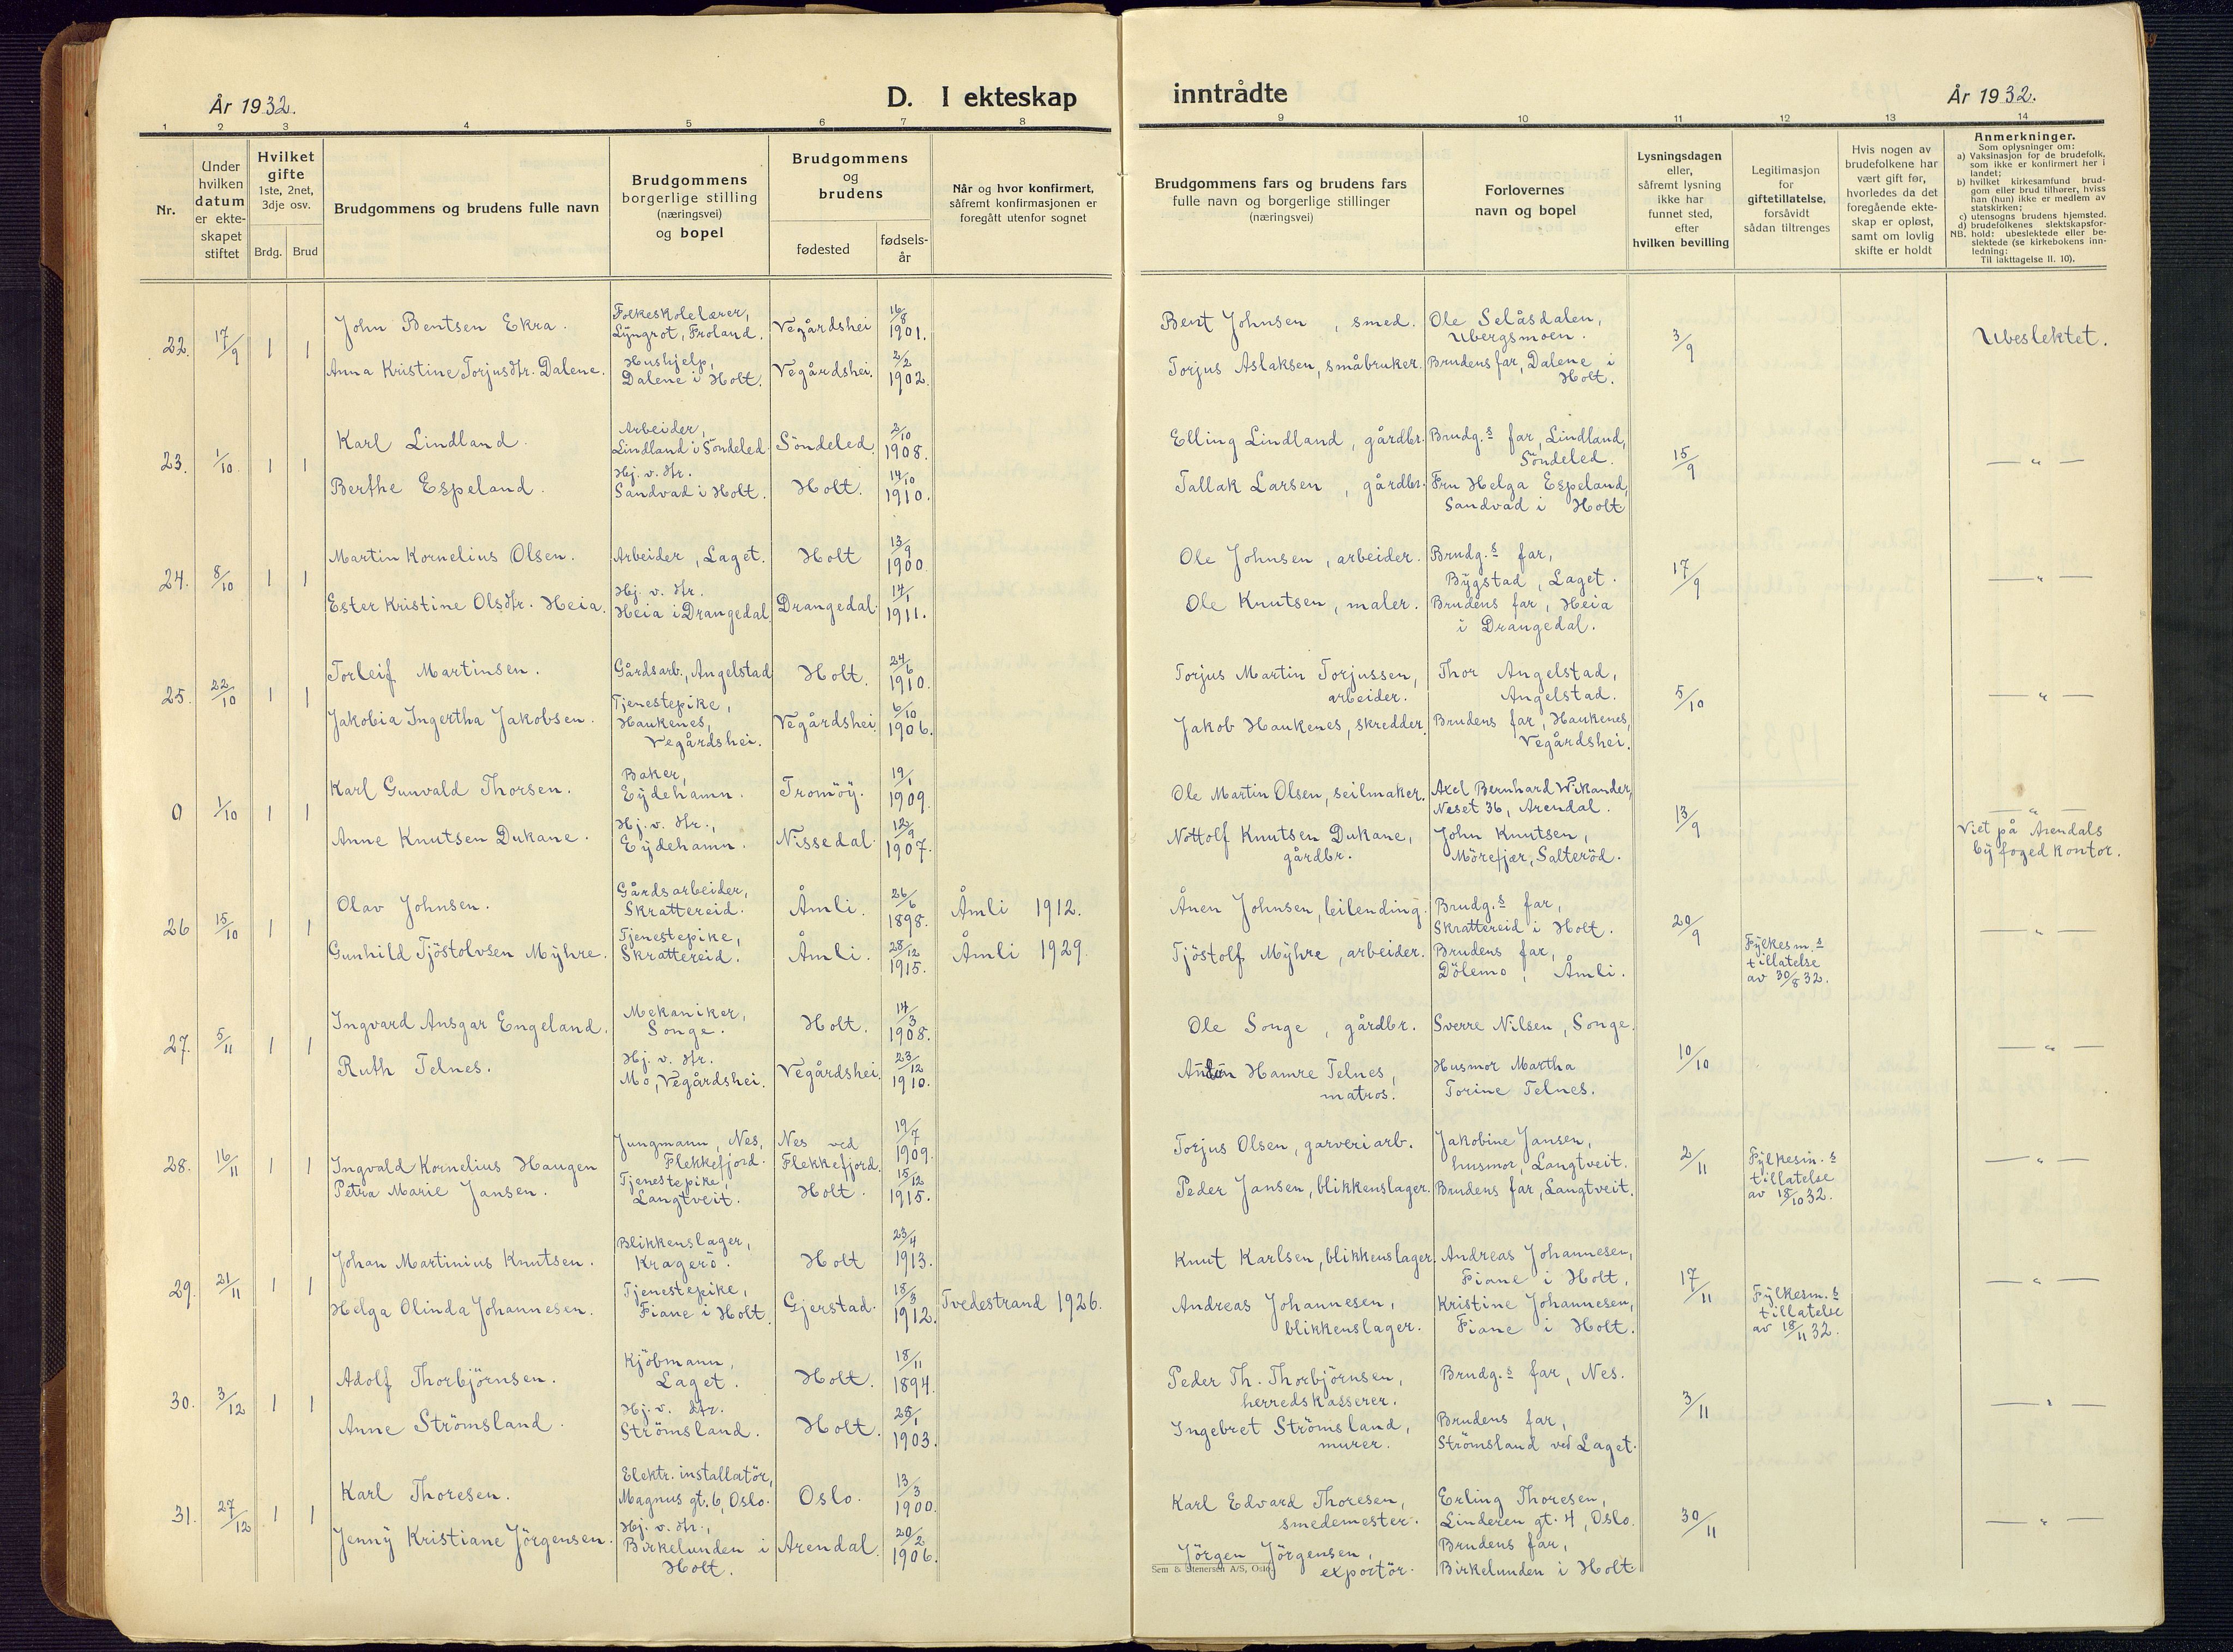 År 1932.
D. I ekteskap
inntrådte
År 1932.
1 2 3 4 5 6 7 8 9 10 11 12 13 14
Nr.
Under
hvilken
datum
er ekte-
skapet
stiftet
Hvilket
gifte
1ste, 2net,
3dje osv.
Brdg. Brud
Brudgommens og brudens fulle navn
Brudgommens
borgerlige stilling
(næringsvei)
og bopel
Brudgommens
og
brudens
fødested
fødsels-
år
Når og hvor konfirmert,
såfremt konfirmasjonen er
foregått utenfor sognet
Brudgommens fars og brudens fars
fulle navn og borgerlige stillinger
(næringsvei)
Forlovernes
navn og bopel
Lysningsdagen
eller,
såfremt lysning
ikke har
funnet sted,
efter
hvilken bevilling
Legitimasjon
for
giftetillatelse,
forsåvidt
sådan tiltrenges
Hvis nogen av
brudefolkene har
vært gift før,
hvorledes da det
foregående ekte-
skap er opløst,
samt om lovlig
skifte er holdt
Anmerkninger.
Som oplysninger om:
a) Vaksinasjon for de brudefolk,
som ikke er konfirmert her i
landet;
b) hvilket kirkesamfund brud-
gom eller brud tilhører, hviss
han (hun) ikke er medlem av
statskirken;
c) utensogns brudens hjemsted.
d) brudefolkenes slektskapsfor-
NB. hold: ubeslektede eller be-
slektede (se kirkebokens inn-
ledning:
Til iakttagelse II. 10).
22. 17/9 1 1
John Bentsen Ekra.
Folkeskolelærer,
Lyngrot, Froland.
Vegårdshei
16/8
1901.
Bent Johnsen, smed.
Ole Selåsdalen,
Ubergsmoen.
3/9
Ubeslektet.
Anna Kristine Torjusdtr. Dalene.
Hushjelp,
Dalene i Holt.
Vegårdshei.
2/2
1902.
Torjus Aslaksen, småbruker.
Brudens far, Dalene i
Holt.
23. 1/10 1 1
Karl Lindland.
Arbeider,
Lindland i Söndeled.
Söndeled.
2/10
1908.
Elling Lindland, gårdbr.
Brudg.s far, Lindland,
Söndeled.
15/9
— " —
Berthe Espeland.
Hj. v. dtr.
Sandvad i Holt.
Holt.
14/10
1910.
Tallak Larsen, gårdbr.
Fru Helga Espeland,
Sandvad i Holt
24. 8/10 1 1
Martin Kornelius Olsen.
Arbeider, Laget.
Holt
13/9
1900.
Ole Johnsen, arbeider.
Brudg.s far,
Bygstad, Laget.
17/9
— " —
Ester Kristine Olsdtr. Heia.
Hj. v. dtr.
Heia i Drangedal
Drangedal.
14/1
1911.
Ole Knutsen, maler.
Brudens far, Heia
i Drangedal.
25. 22/10 1 1
Torleif Martinsen.
Gårdsarb., Angelstad
Holt.
24/6
1910.
Torjus Martin Torjussen,
arbeider.
Thor Angelstad,
Angelstad.
5/10
— " —
Jakobia Ingertha Jakobsen.
Tjenestepike,
Haukenes,
Vegårdshei.
Vegårdshei.
6/10
1906.
Jakob Haukenes, skredder.
Brudens far, Haukenes,
Vegårdshei.
0 1/10 1 1
Karl Gunvald Thorsen.
Baker,
Eydehamn.
Tromöy.
19/1
1909.
Ole Martin Olsen, seilmaker.
Axel Bernhard Wikander,
Neset 36, Arendal.
13/9
— " —
Viet på Arendals
byfogedkontor.
Anne Knutsen Dukane.
Hj. v. dtr.,
Eydehamn.
Nissedal.
12/9
1907.
Nottolf Knutsen Dukane,
gårdbr.
John Knutsen,
Mörefjær, Salteröd.
26 15/10 1 1
Olav Johnsen.
Gårdsarbeider,
Skrattereid.
Åmli.
26/6
1898.
Åmli 1912.
Ånen Johnsen, leilending.
Brudg.s far,
Skrattereid i Holt.
20/9
Fylkesm.s
tillatelse
av 30/8 32.
— " —
Gunhild Tjöstolvsen Myhre.
Tjenestepike,
Skrattereid.
Åmli.
28/12
1915.
Åmli 1929.
Tjöstolf Myhre, arbeider.
Brudens far,
Dölemo, Åmli.
27. 5/11 1 1
Ingvard Ansgar Engeland.
Mekaniker,
Songe.
Holt.
14/3
1908.
Ole Songe, gårdbr.
Sverre Nilsen, Songe.
10/10
— " —
Ruth Telnes.
Hj. v. dtr.
Mo, Vegårdshei.
Vegårdshei.
23/12
1910.
Hamre Telnes,
matros.
Husmor Martha
Torine Telnes.
28. 16/11 1 1
Ingvald Kornelius Haugen
Jungmann, Nes,
Flekkefjord.
Nes ved
Flekkefjord.
19/7
1909.
Torjus Olsen, garveriarb.
Jakobine Jansen,
husmor, Langtveit.
2/11
Fylkesm.s
tillatelse
av 18/10 32.
— " —
Petra Marie Jansen.
Tjenestepike,
Langtveit.
Holt.
15/12
1915.
Peder Jansen, blikkenslager.
Brudens far, Langtveit.
29. 21/11 1 1
Johan Martinius Knutsen.
Blikkenslager,
Kragerö.
Holt
23/4
1913.
Knut Karlsen, blikkenslager.
Andreas Johannesen,
Fiane i Holt,
17/11
Fylkesm.s
tillatelse
av 18/11 32.
— " —
Helga Olinda Johannesen.
Tjenestepike,
Fiane i Holt.
Gjerstad.
18/3
1912.
Tvedestrand 1926.
Andreas Johannesen,
blikkenslager.
Kristine Johannesen,
Fiane i Holt.
30. 3/12 1 1
Adolf Thorbjörnsen.
Kjöbmann,
Laget.
Holt.
18/11
1894.
Peder Th. Thorbjörnsen,
herredskasserer.
Brudg.s far, Nes.
3/11
— " —
Anne Strömsland.
Hj. v. dtr.
Strömsland.
Holt.
25/1
1903.
Ingebret Strömsland,
murer.
Brudens far,
Strömsland ved Laget.
31. 27/12 1 1
Karl Thoresen.
Elektr. installatör,
Magnus gt. 6, Oslo.
Oslo.
13/3
1900.
Karl Edvard Thoresen,
smedemester.
Erling Thoresen,
Linderen gt. 4, Oslo.
30/11
— " —
Jenny Kristiane Jörgensen.
Hj. v. dtr.,
Birkelunden i
Holt.
Arendal.
20/2
1906.
Jörgen Jörgensen,
exportör.
Brudens far,
Birkelunden i Holt.
Sem & Stenersen A/S, Oslo